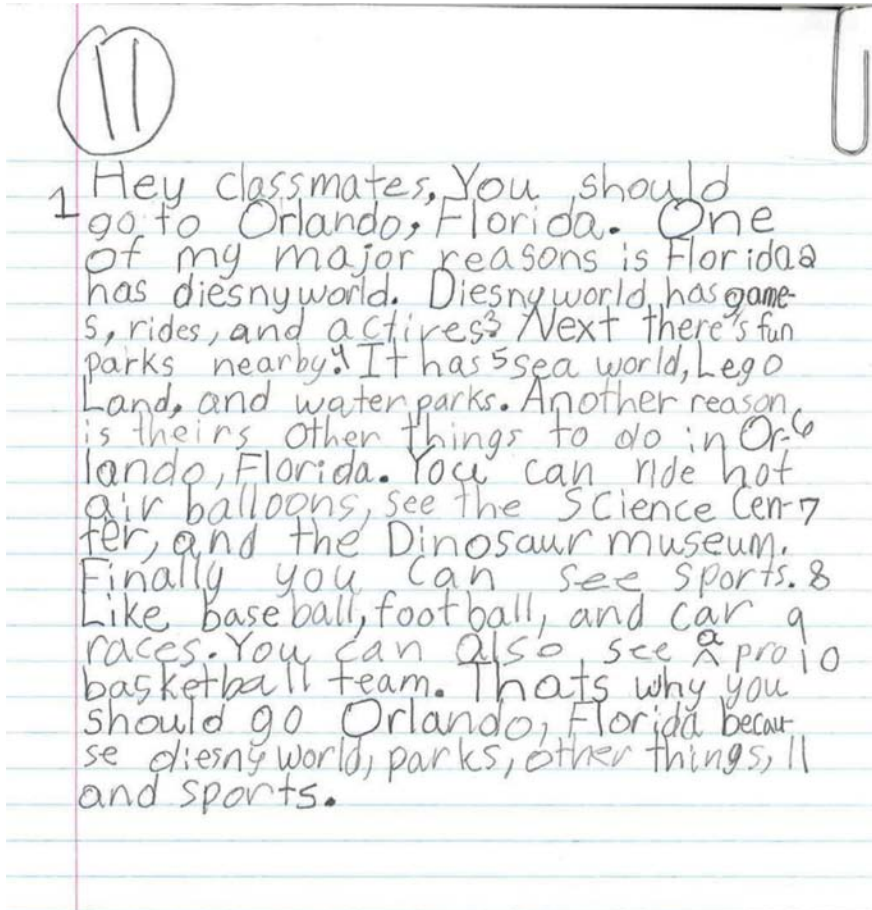 11
1 Hey classmates, You should
go to Orlando, Florida. One
of my major reasons is Florida 2
has diesnyworld. Diesnyworld has game-
s, rides, and actires. 3 Next there's fun
parks nearby. 4 It has 5 sea world, Lego
Land, and water parks. Another reason
is theirs other things to do in Or- 6
lando, Florida. You can ride hot
air balloons, see the Science Cen- 7
ter, and the Dinosaur museum.
Finally you can see sports. 8
Like baseball, football, and car 9
races. You can also see a pro 10
basketball team. Thats why you
should go Orlando, Florida becau-
se diesnyworld, parks, other things, 11
and sports.